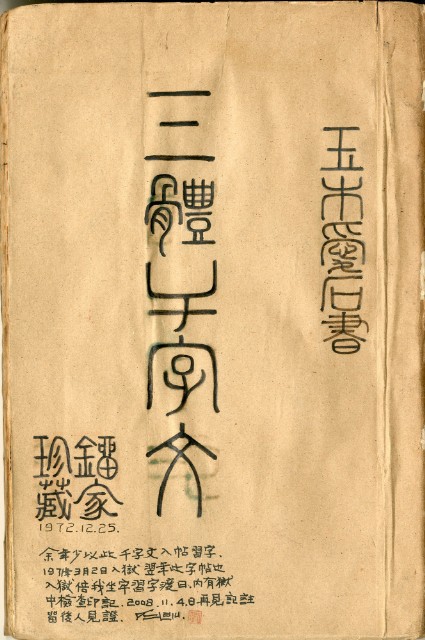 玉木愛石書
三體千字文
鐂家
珍藏
1972.12.25.
余年少以此千字文入帖習字.
1978年3月2日入獄翌年此字帖也
入獄陪我坐牢習字渡日、內有獄
中檢查印記. 2008.11.4日再見記註
留後人見證.